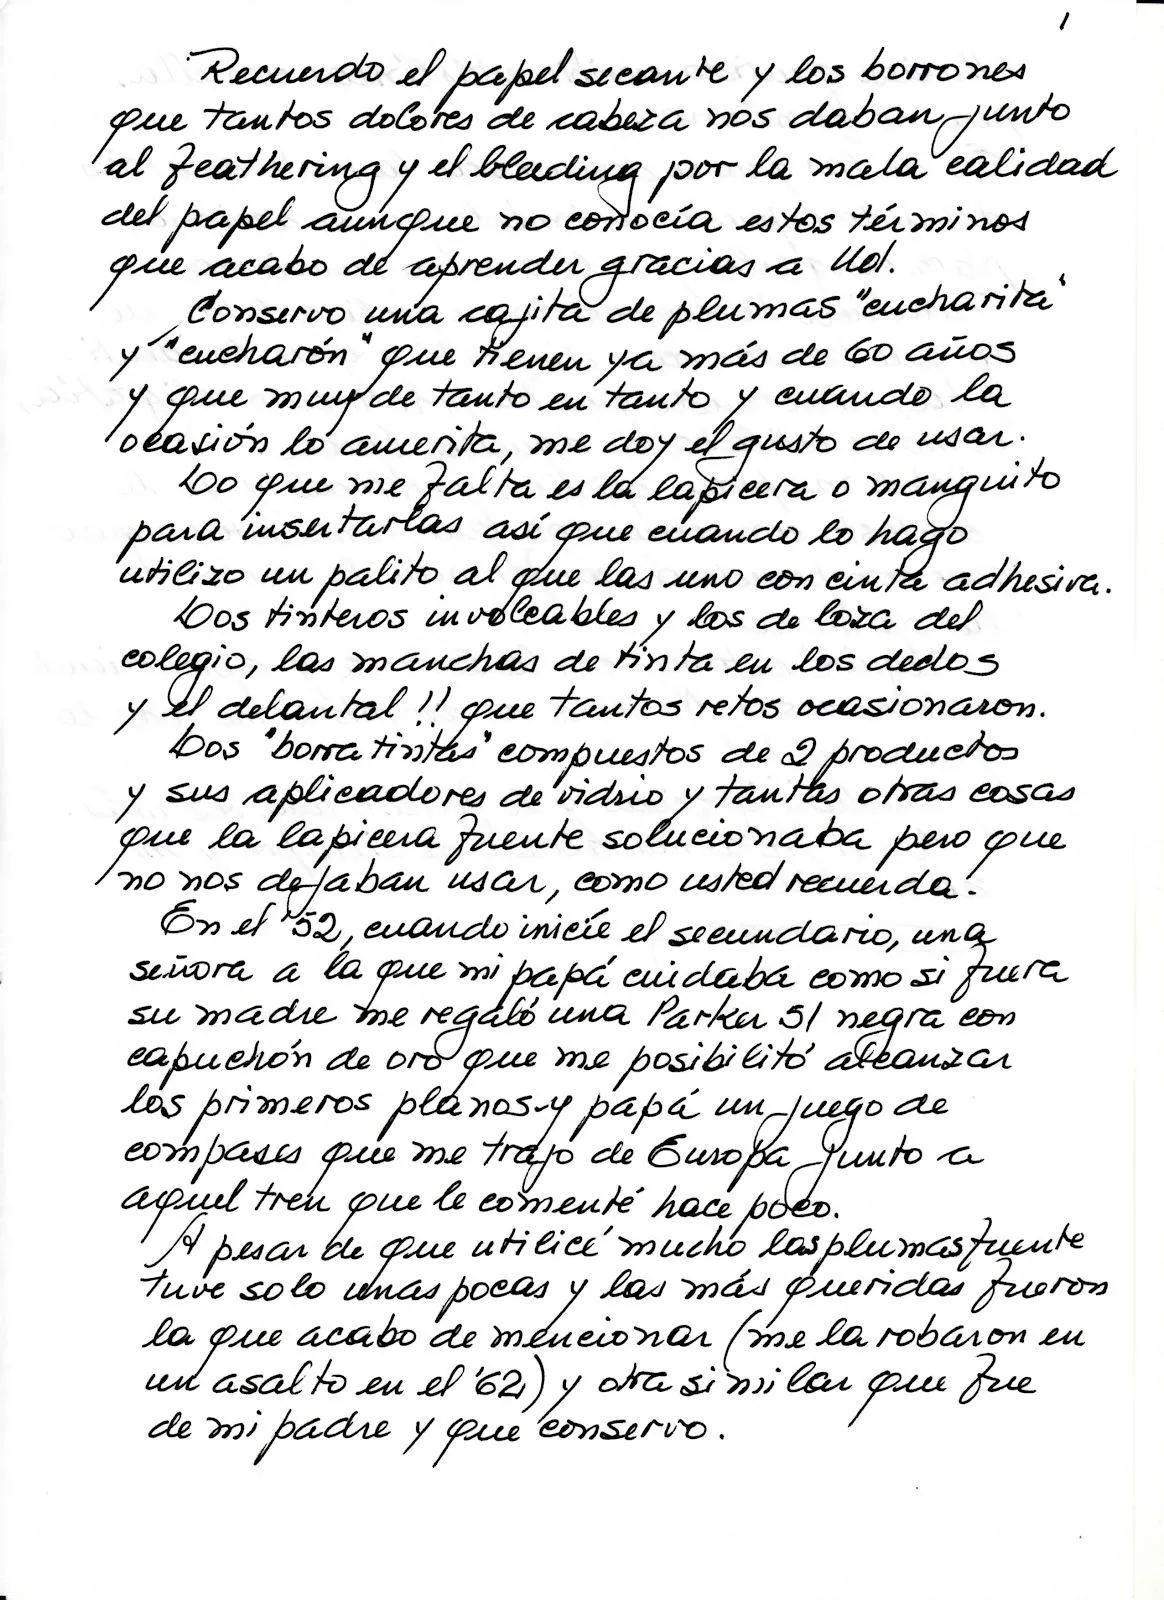 1
Recuerdo el papel secante y los borrones
que tantos dolores de cabeza nos daban junto
al feathering y el bleeding por la mala calidad
del papel aunque no conocía estos términos
que acabo de aprender gracias a Ud.
Conservo una cajita de plumas "cucharita"
y "cucharón" que tienen ya más de 60 años
y que muy de tanto en tanto y cuando la
ocasión lo amerita, me doy el gusto de usar.
Lo que me falta es la lapicera o manguito
para insertarlas así que cuando lo hago
utilizo un palito al que las uno con cinta adhesiva.
Los tinteros involcables y los de loza del
colegio, las manchas de tinta en los dedos
y el delantal!! que tantos retos ocasionaron.
Los "borratintas" compuestos de 2 productos
y sus aplicadores de vidrio y tantas otras cosas
que la lapicera fuente solucionaba pero que
no nos dejaban usar, como usted recuerda.
En el '52, cuando inicié el secundario, una
señora a la que mi papá cuidaba como si fuera
su madre me regaló una Parker 51 negra con
capuchón de oro que me posibilitó alcanzar
los primeros planos y papá un juego de
compases que me trajo de Europa junto a
aquel tren que le comenté hace poco.
A pesar de que utilicé mucho las plumas fuente
tuve solo unas pocas y las más queridas fueron
la que acabo de mencionar (me la robaron en
un asalto en el '62,) y otra similar que fue
de mi padre y que conservo.